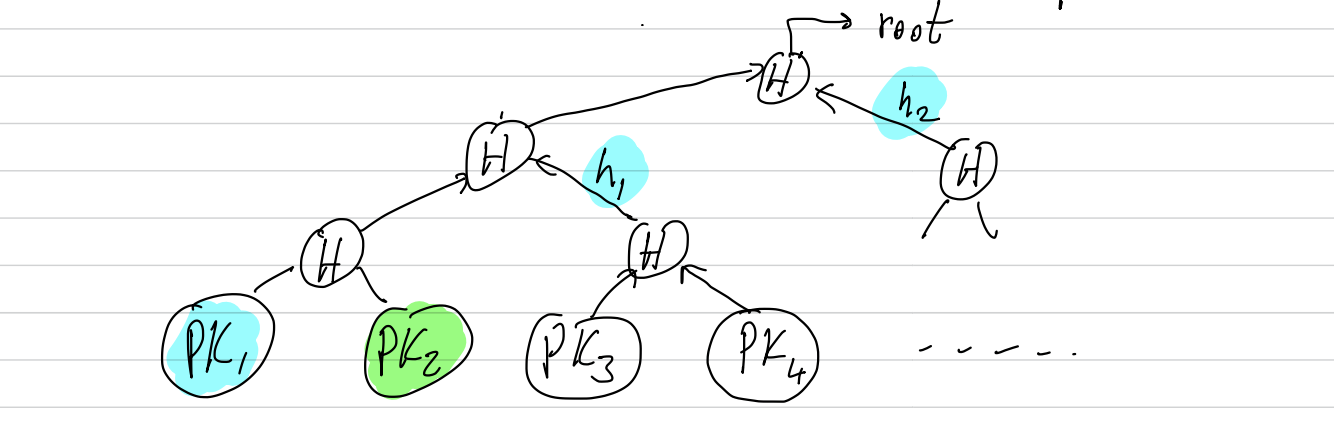 root
H
h₂
H
h₁
H
H
H
PK₁
PK₂
PK₃
PK₄